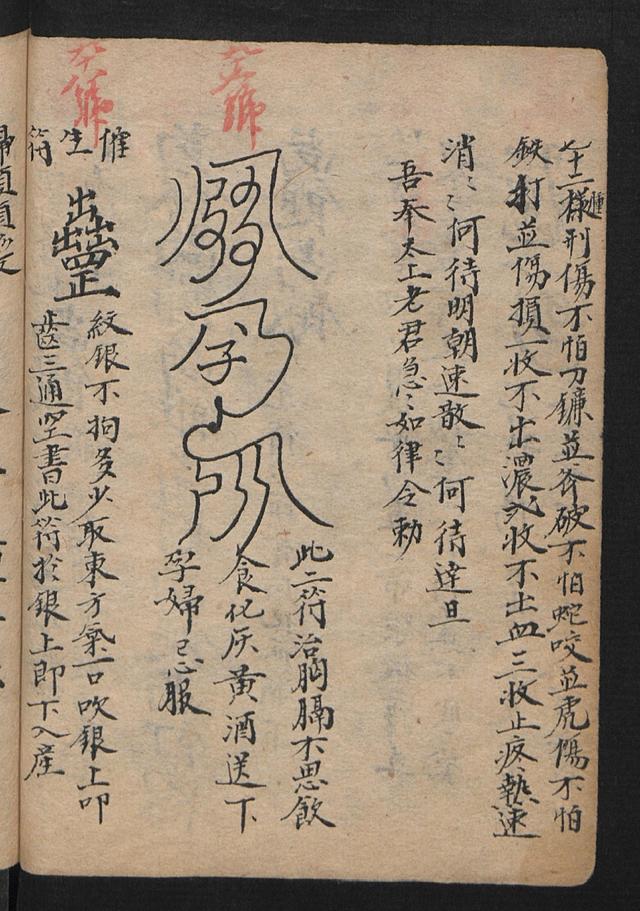 七十二樣刑傷不怕刀鐮並斧破不怕蛇咬並虎傷不怕
種
鉄打並傷損一收不出濃二收不出血三收止疼熱速
消〻〻何待明朝速散〻〻何待達旦
吾奉太上老君急〻如律令勅
此二符治胸膈不思飲
食化灰黄酒送下
孕婦忌服
催生符
紋銀不拘多少取東方氣一口吹銀上叩
齒三通空書此符於銀上即下入產